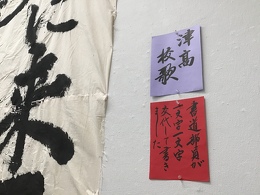 津高
校歌
書道部員が
一文字一文字
交代して書き
ました
に来